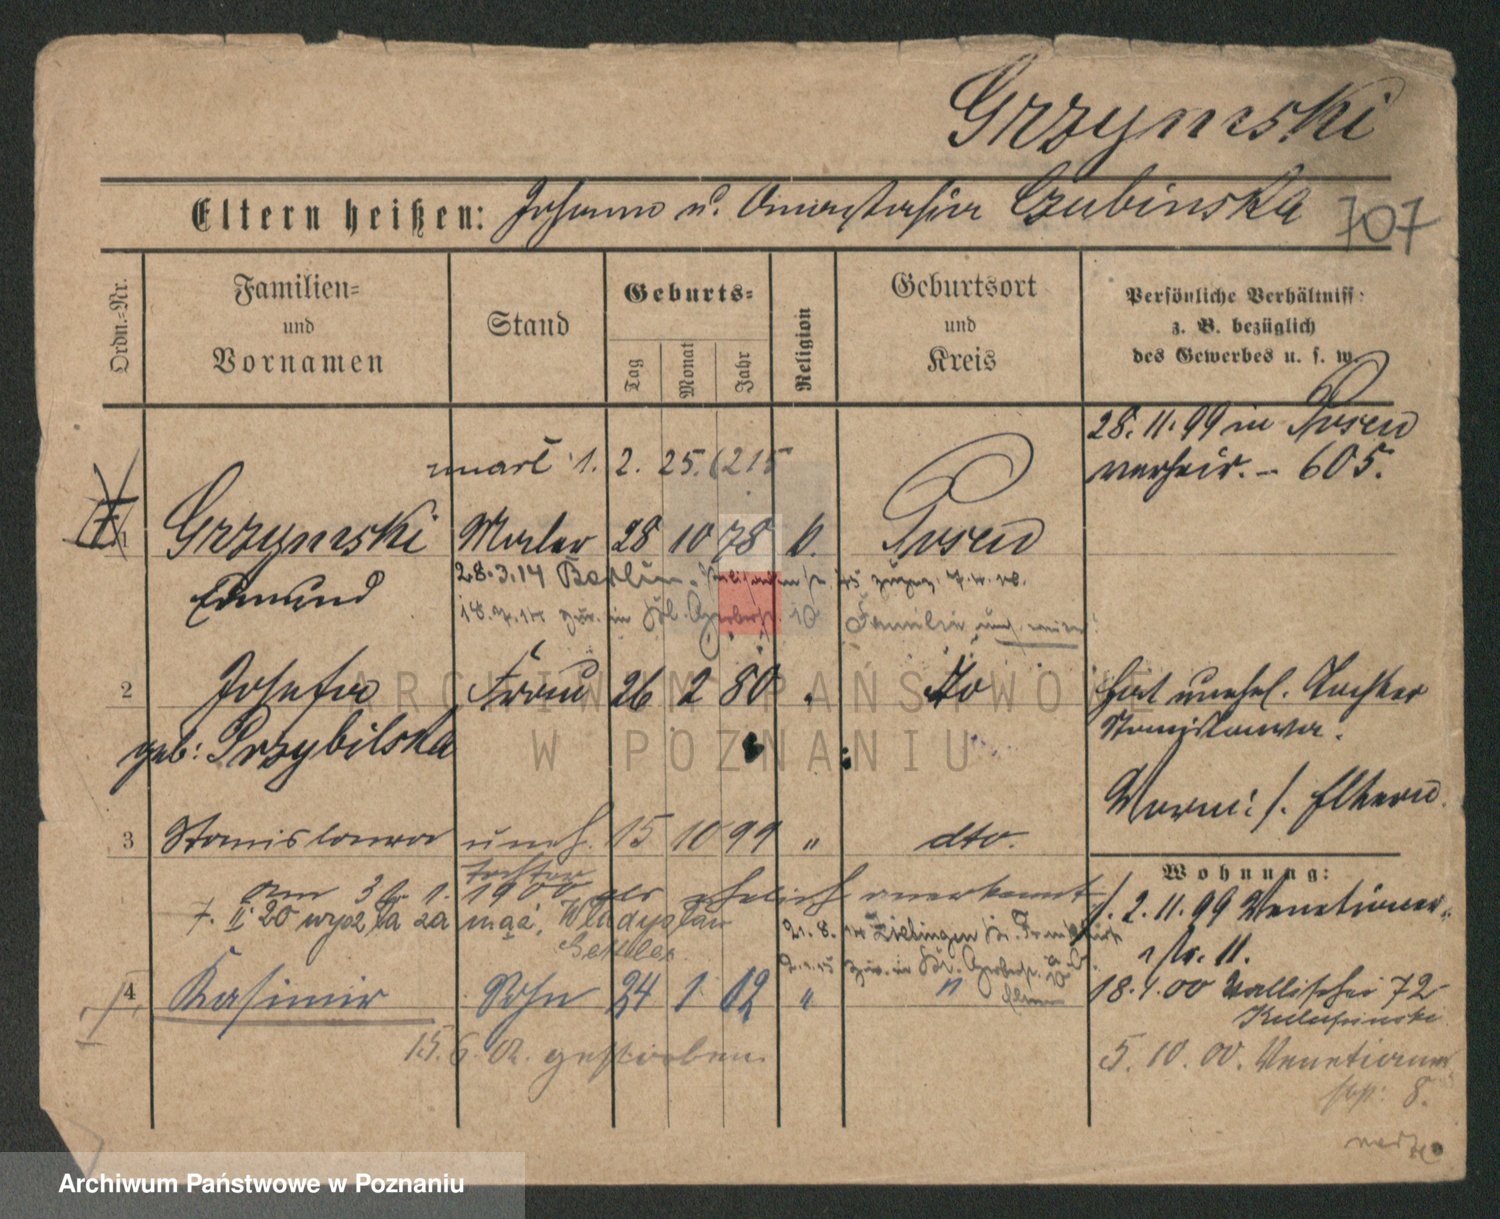 Grzymski
Eltern heißen: Johann u. Anastasia Czubinska 707
Ordn.-Nr.
Familien-
und
Vornamen
Stand
Geburts-
Tag
Monat
Jahr
Religion
Geburtsort
und
Kreis
Persönliche Verhältniss:
z. B. bezüglich
des Gewerbes u. s. w.
28.11.99 in Posen
verheir. - 605.
zmarł 1. 2. 25. (215
1 Grzymski Maler 28 10 78 k. Posen
Edmund
28.3.14 Berlin
Familie
2 Josefa Frau 26 2 80 " do
geb: Przybilska
hat unehel. Tochter
Stanislawa.
Worni: s. Eltern
3 Stanislawa uneh. 15 10 99 " dto.
Tochter
am 3. 1. 1900 als ehelich anerkannt
7. II 20 wyszła za mąż, Władysław
Wohnung:
2.11.99 Venetianer-
str. 11.
4 Kasimir Sohn 24 1 02 " "
18.1.00 Wallischei 72
15. 6. 02. gestorben
5. 10. 00. Venetianer
str: 8.
ARCHIWUM PAŃSTWOWE
W POZNANIU
Archiwum Państwowe w Poznaniu